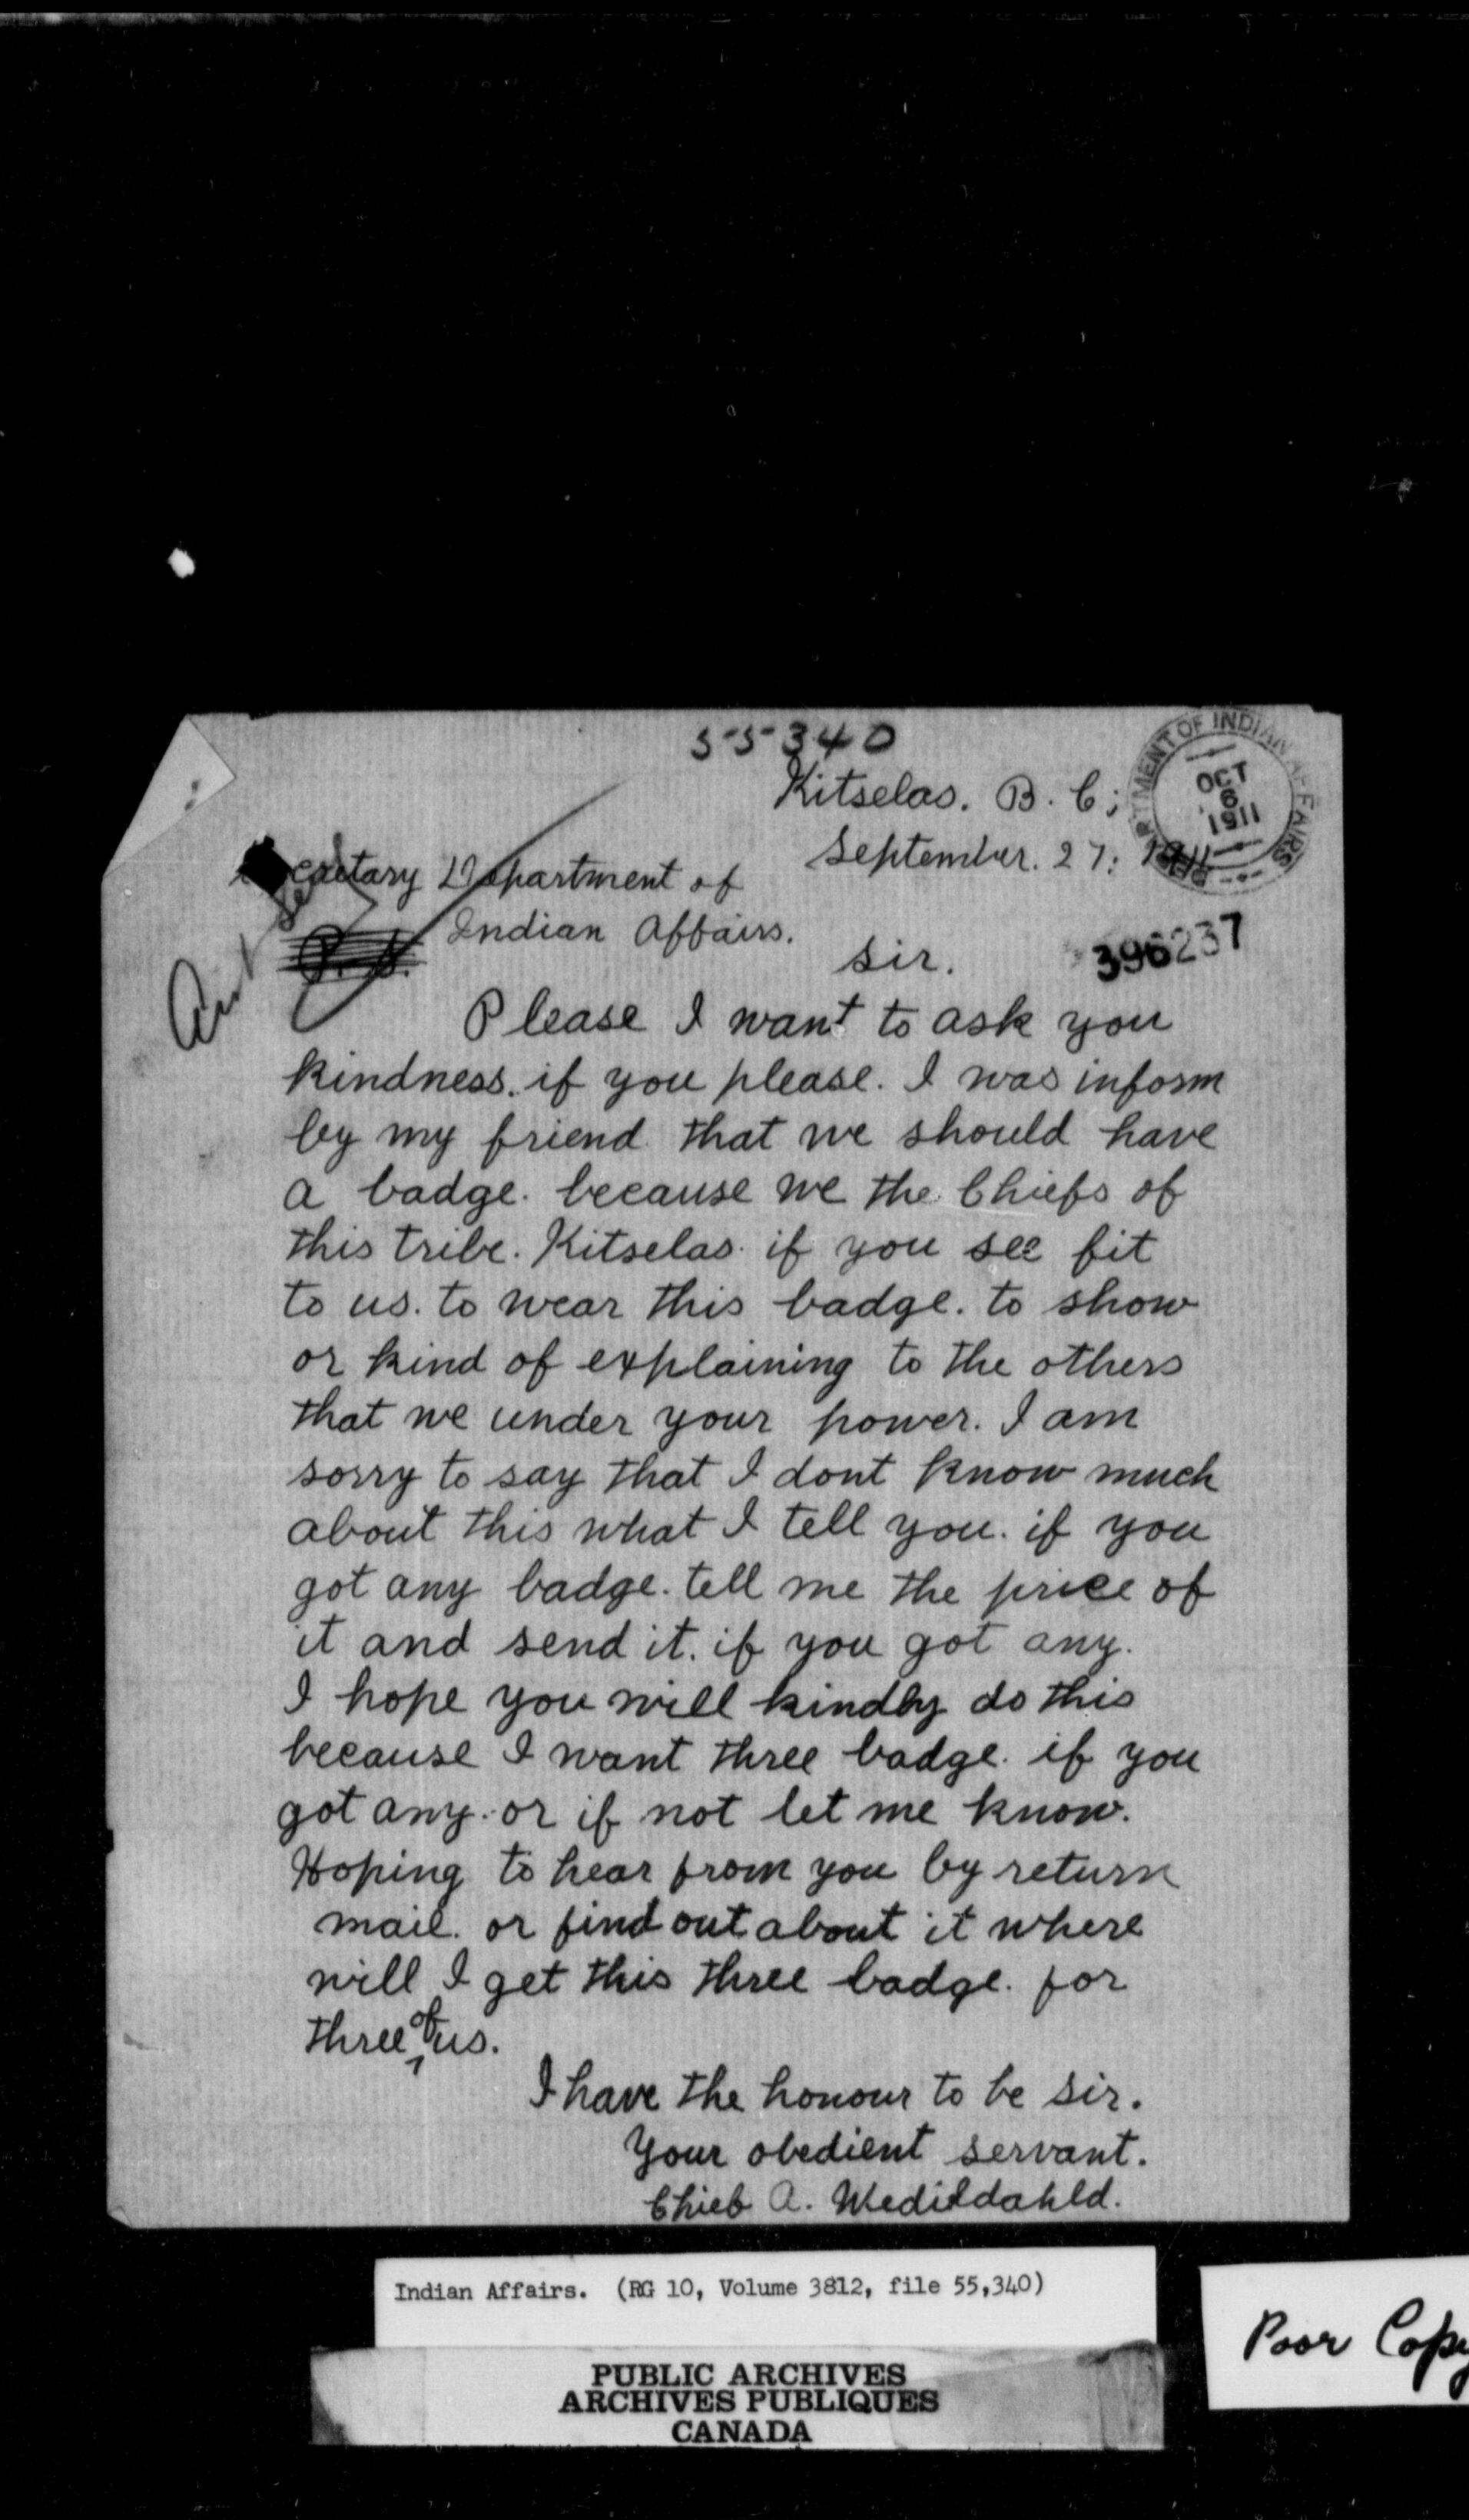 55340
DEPARTMENT OF INDIAN AFFAIRS
OCT
6
1911
Kitselas. B. C;
September. 27: 1911
Secretary Department of
Indian Affairs.
396237
Sir.
Please I want to ask you
kindness. if you please. I was inform
by my friend that we should have
a badge. because we the Chiefs of
this tribe. Kitselas. if you see fit
to us. to wear this badge. to show
or kind of explaining to the others
that we under your power. I am
sorry to say that I dont know much
about this what I tell you. if you
got any badge. tell me the price of
it and send it. if you got any.
I hope you will kindly do this
because I want three badge. if you
got any. or if not let me know.
Hoping to hear from you by return
mail. or find out about it where
will I get this three badge. for
three of us.
I have the honour to be Sir.
Your obedient servant.
Chief A. Wedildahld.
Indian Affairs. (RG 10, Volume 3812, file 55,340)
Poor Copy
PUBLIC ARCHIVES
ARCHIVES PUBLIQUES
CANADA